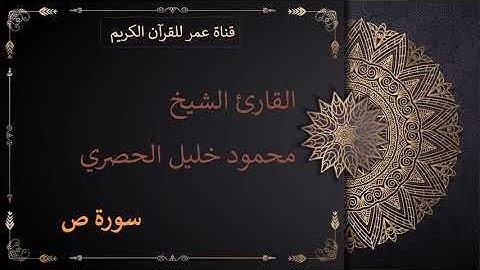 قناة عمر للقرآن الكريم
القارئ الشيخ
محمود خليل الحصري
سورة ص